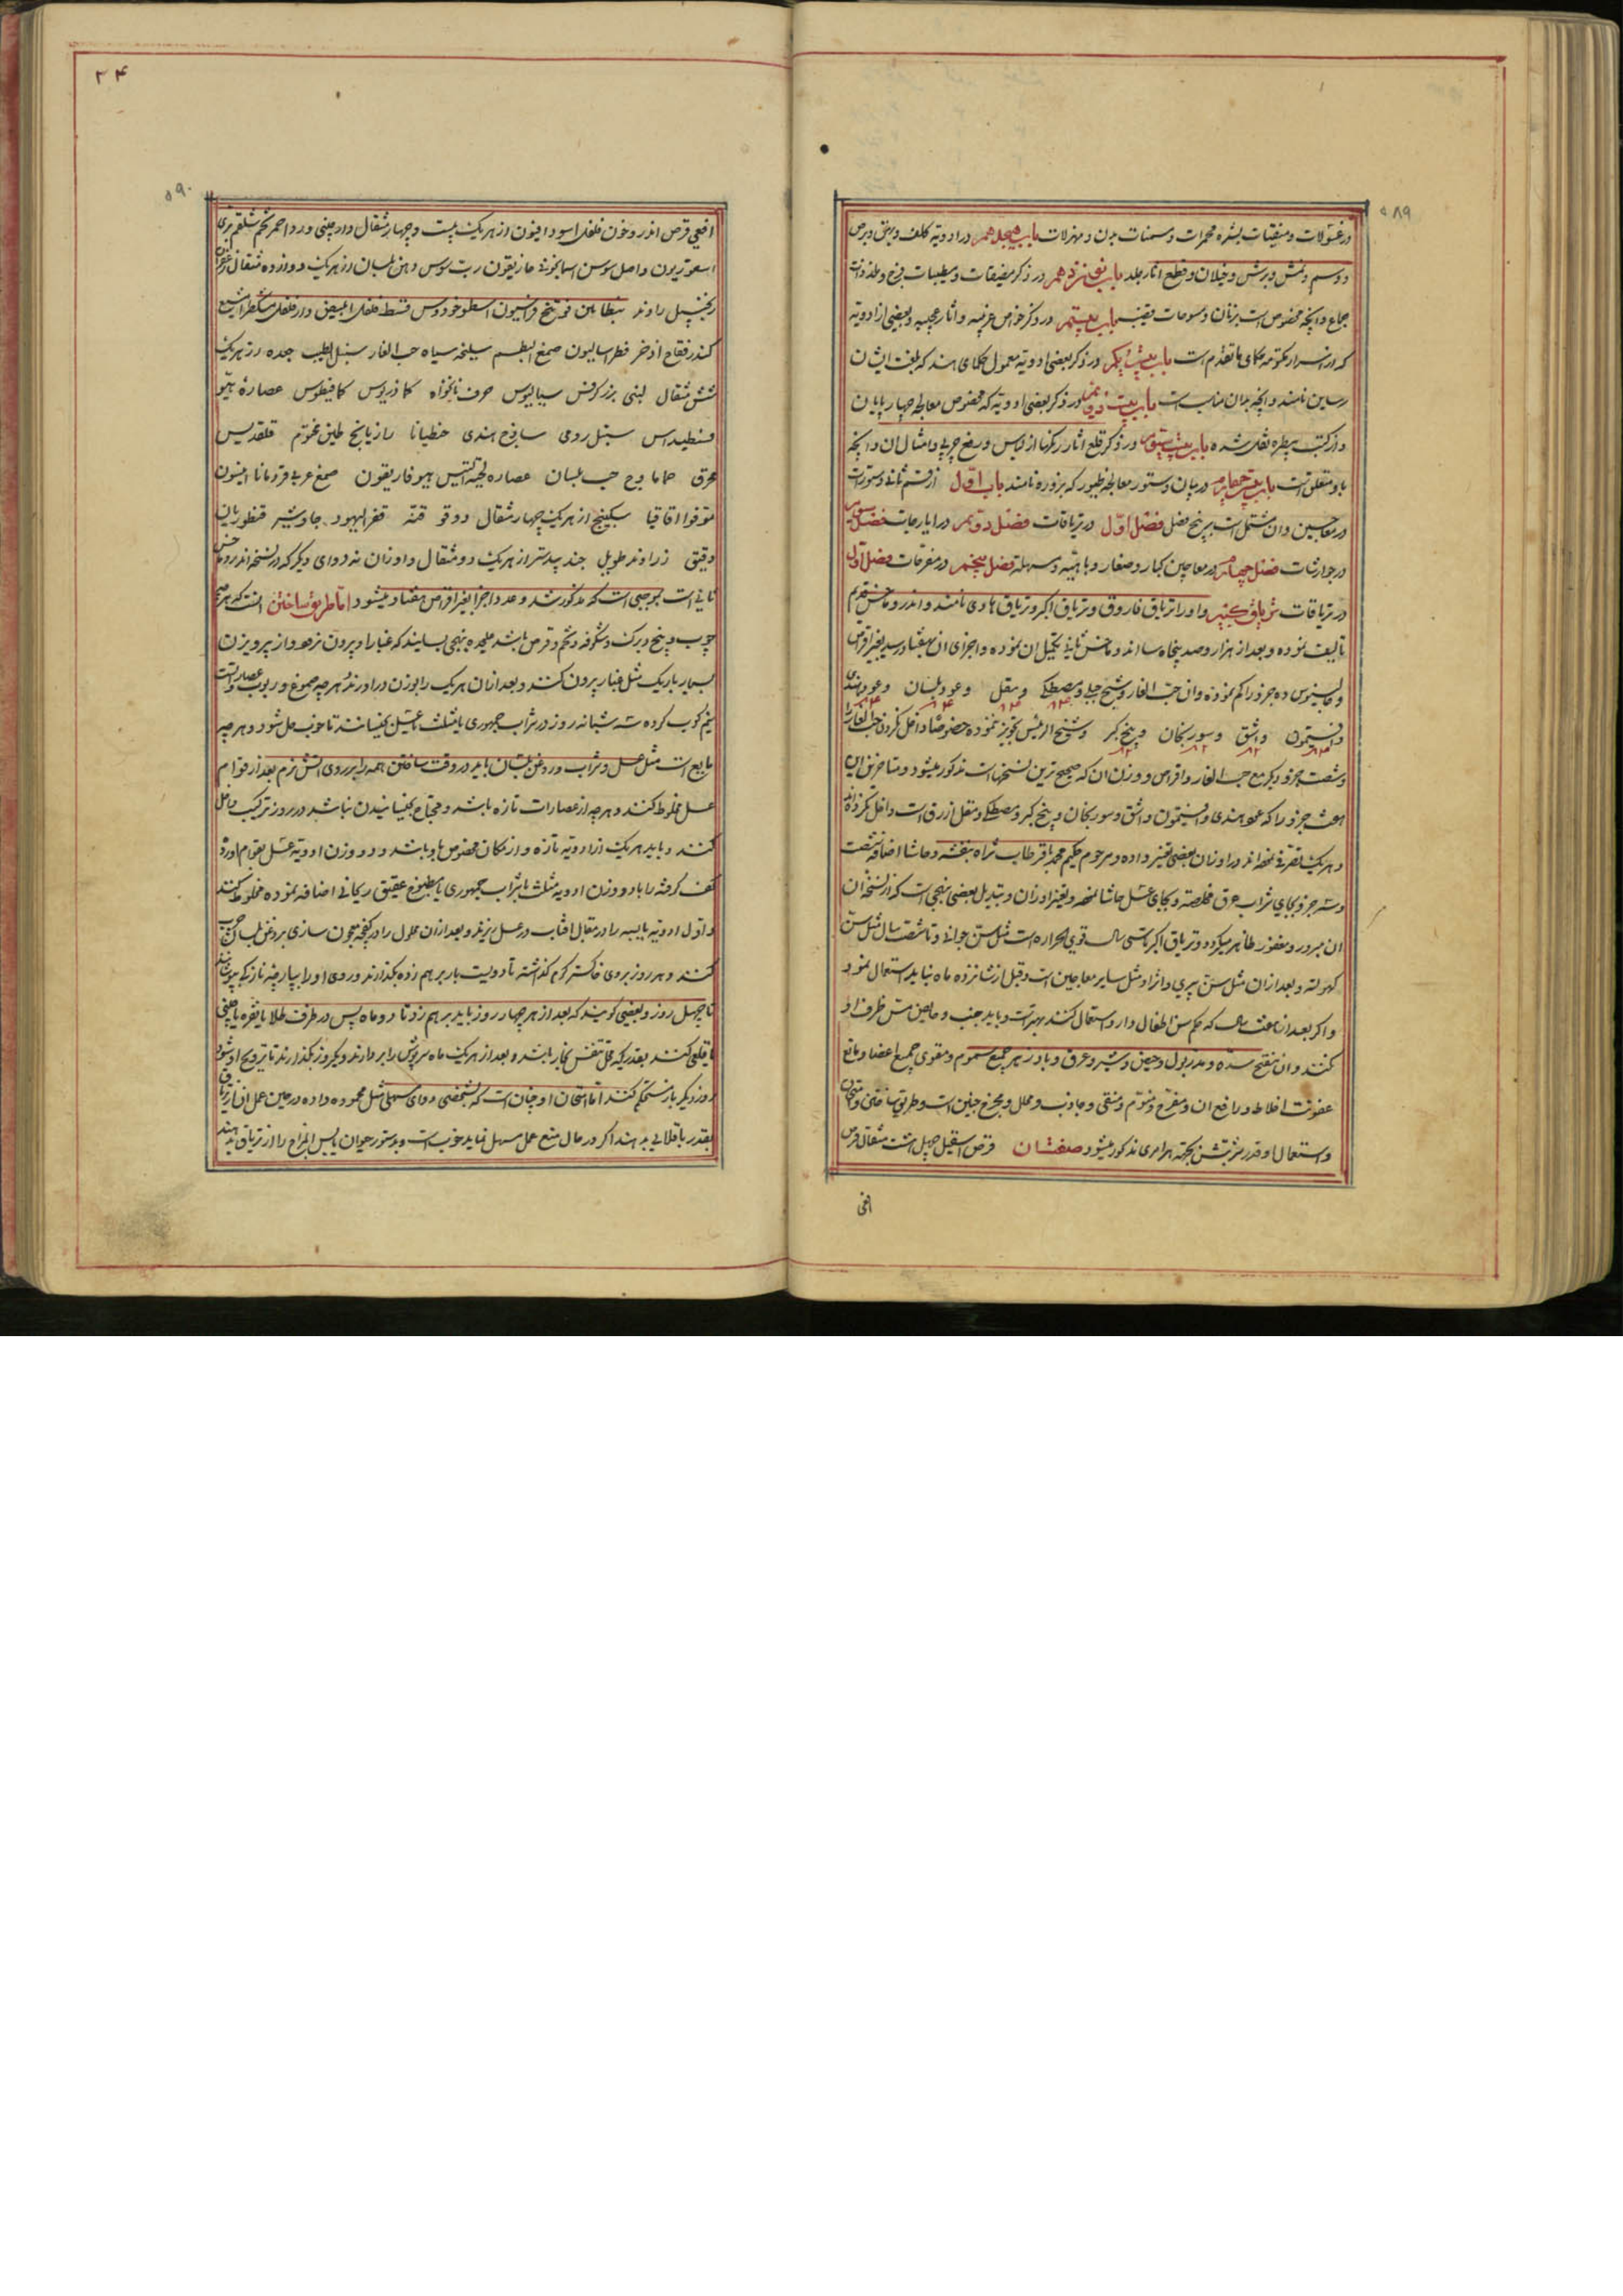 ۵۸۹
در غسولات و منقیات بشره و محمرات و مسمنات بدن و مهزلات باب هیجدهم در ادویه کلف و بهق و برص
و وسم و نمش و برش و خیلان و قطع اثار جلد باب نوزدهم در ذکر مضیقات و مطیبات فرج و ملذذات
جماع و آنچه مخصوص است بزنان و مسوحات قضیب باب بیستم در ذکر خواص غریبه و اثار عجیبه و بعضی از ادویه
که از اسرار مکتومه حکمای ما تقدم است باب بیست و یکم در ذکر بعضی ادویه معمول حکمای هند که بلغت ایشان
رساین نامند و آنچه بدان مناسب است باب بیست و دویم در ذکر بعضی ادویه که مخصوص معالجه چهارپایان
و از کتب بیطره نقل شده باب بیست و سیوم در ذکر قلع اثار رنگها از لباس و رفع چربی و امثال ان و آنچه
باو متعلق است باب بیست و چهارم در بیان دستور معالجه طیور که بزدره نامند باب اول از قسم ثانی دستورات
در معاجین و ان مشتمل است بر پنج فصل فصل اول در تریاقات فصل دویم در ایارجات فصل سیوم
در جوارشات فصل چهارم در معاجین کبار و صغار و باهیه و مسهله فصل پنجم در مفرحات فصل اول
در تریاقات تریاق کبیر و او را تریاق فاروق و تریاق اکبر و تریاق هادی نامند و اندروماخس قدیم
تالیف نموده و بعد از هزار و صد و پنجاه سال اندروماخس ثانی تکمیل ان نموده و اجزای ان بهفتاد رسید بغیر اقراص
و جالینوس ده جزو را کم نموده و ان حب الغار و شیح جبلی و مصطکی و مقل و عود بلسان و عود هندی
و افتیمون و اشق و سورنجان و بیخ کبر و شیخ الرئیس تجویز نموده خصوصا داخل کردن حب الغار را
و شصت جزو دیگر مع حب الغار و اقراص و وزن ان که صحیح ترین نسخهاست مذکور میشود و متاخرین ازین
هشت جزو را که عود هندی و افتیمون و اشق و سورنجان و بیخ کبر و مصطکی و مقل ازرق است داخل نکرده اند
و هر یک تصرفی نموده اند در اوزان بعضی تغییر داده و مرحوم حکیم محمد باقر طاب ثراه بنفشه و حاشا اضافه شصت
و سه جزو بجای شراب عرق مخلصه و بجای عسل حاشا نموده و تغییر اوزان و تبدیل بعضی بنهجی است که از نسخه ان
ان مبرور و مغفور ظاهر میکردد و تریاق اکبر تا سی سال قوی الحراره است مثل سن جوانی و تا شصت سال مثل سن
کهولة و بعد از ان مثل سن پیری و اثر او مثل سایر معاجین است و قبل از شانزده ماه نباید استعمال نمود
و اگر بعد از هفت سال که حکم سن اطفال دارد استعمال کنند بهتر است و باید جنب و حایض مس ظرف او
کنند و ان مفتح سده و مدر بول و حیض و شیر و عرق و پادزهر جمیع سموم و مقوی جمیع اعضا و مانع
عفونت اخلاط و رافع ان و مفرح و منوم و منقی و جاذب و محلل و مخرج جنین است و طریق ساختن و امتحان
و استعمال او و قدر شربتش بجهة هر امری مذکور میشود صفت ان قرص اسقیل چهل و هشت مثقال قرص
افعی
۳۴
۵۹۰
افعی قرص اندروخون فلفل اسود افیون از هر یک بیست و چهار مثقال دارچینی ورد احمر تخم شلغم بری
اسقوردیون و اصل سوسن اسمانجونی غاریقون رب سوس دهن بلسان از هر یک دوازده مثقال زعفران
زنجبیل راوند بنطافلن فوتنج فراسیون اسطوخودوس قسط فلفل ابیض دارفلفل مشکطرامشیع
کندر فقاح اذخر فطراسالیون صمغ البطم سلیخه سیاه حب الغار سنبل الطیب جعده از هر یک
شش مثقال لبنی بزر کرفس سیسالیوس حرف نانخواه کمادریوس کمافیطوس عصاره هیو
قسطیداس سنبل رومی ساذج هندی جنطیانا رازیانج طین مختوم قلقدیس
محرق حماما وج حب بلسان عصاره لحیة التیس هیوفاریقون صمغ عربی قردمانا انیسون
مو فو اقاقیا سکبینج از هر یک چهار مثقال دوقو قنه قفر الیهود جاوشیر قنطوریون
دقیق زراوند طویل جندبیدستر از هر یک دو مثقال و اوزان نه دوای دیگر که در نسخه اندروماخس
ثانی است بموجبی است که مذکور شد و عدد اجزا بغیر اقراص هفتاد میشود اما طریق ساختن انست که هر چه
چوب و بیخ و برک و شکوفه و تخم و قرص باشد علیحده بنهجی بسایند که غبار او بیرون نرود و از پرویزن
بسیار باریک مثل غبار بیرون کنند و بعد از ان هر یک را بوزن دراورند و هر چه صموغ و ربوب و عصارات است
نیم کوب کرده سه شبانه روز در شراب جمهوری یا مثلث یا عسل بخیسانند تا خوب حل شود و هر چه
مایع است مثل عسل و شراب و روغن بلسان باید در وقت ساختن همه را بر روی اتش نرم بعد از قوام
عسل مخلوط کنند و هر چه از عصارات تازه باشد و محتاج بخیسانیدن نباشد در روز ترکیب داخل
کنند و باید هر یک از ادویه تازه و از مکان مخصوص او باشد و دو وزن ادویه عسل بقوام اورده
کف گرفته را با دو وزن ادویه مثلث یا شراب جمهوری یا مطبوخ عتیق ریحانی اضافه نموده مخلوط کنند
و اول ادویه یابسه را در مقابل افتاب در عسل بریزند و بعد از ان محلول را در کفچه معجون سازی بروغن بلسان چرب
کنند و هر روز بر روی خاکستر گرم گذاشته تا دویست بار بر هم زده بگذارند و روی او را بپارچه نازکی بپوشانند
تا چهل روز و بعضی گویند که بعد از هر چهار روز باید بر هم زد تا دو ماه پس در ظرف طلا یا نقره یا چینی
یا قلعی کنند بقدریکه محل تنفس بخار باشد و بعد از هر یک ماه سرپوش را بردارند و یک روز بگذارند تا ترویح او شود
روز دیگر باز مستحکم کنند اما امتحان او چنان است که بشخصی دوای مسهلی مثل محموده داده در حین عمل ان از تریاق
بقدر باقلائی بدهند اگر در حال منع عمل مسهل نماید خوب است و بدستور حیوان یابس المزاج را از تریاق بدهند